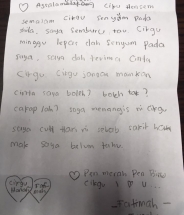 Assalam Cikgu Hensem
semalam cikgu senyum pada
saya. saya sentuhan tau. Cikgu
minggu lepas dah senyum pada
saya. saya dah terima cinta
Cikgu. Cikgu jangan mainkan
cinta saya boleh? boleh tak?
cakap lah? saya menangis ni cikgu
saya cuti hari ni sebab sakit
mak saya belum tahu
pen merah pen biru
cikgu I ♡ U
- Fatimah -